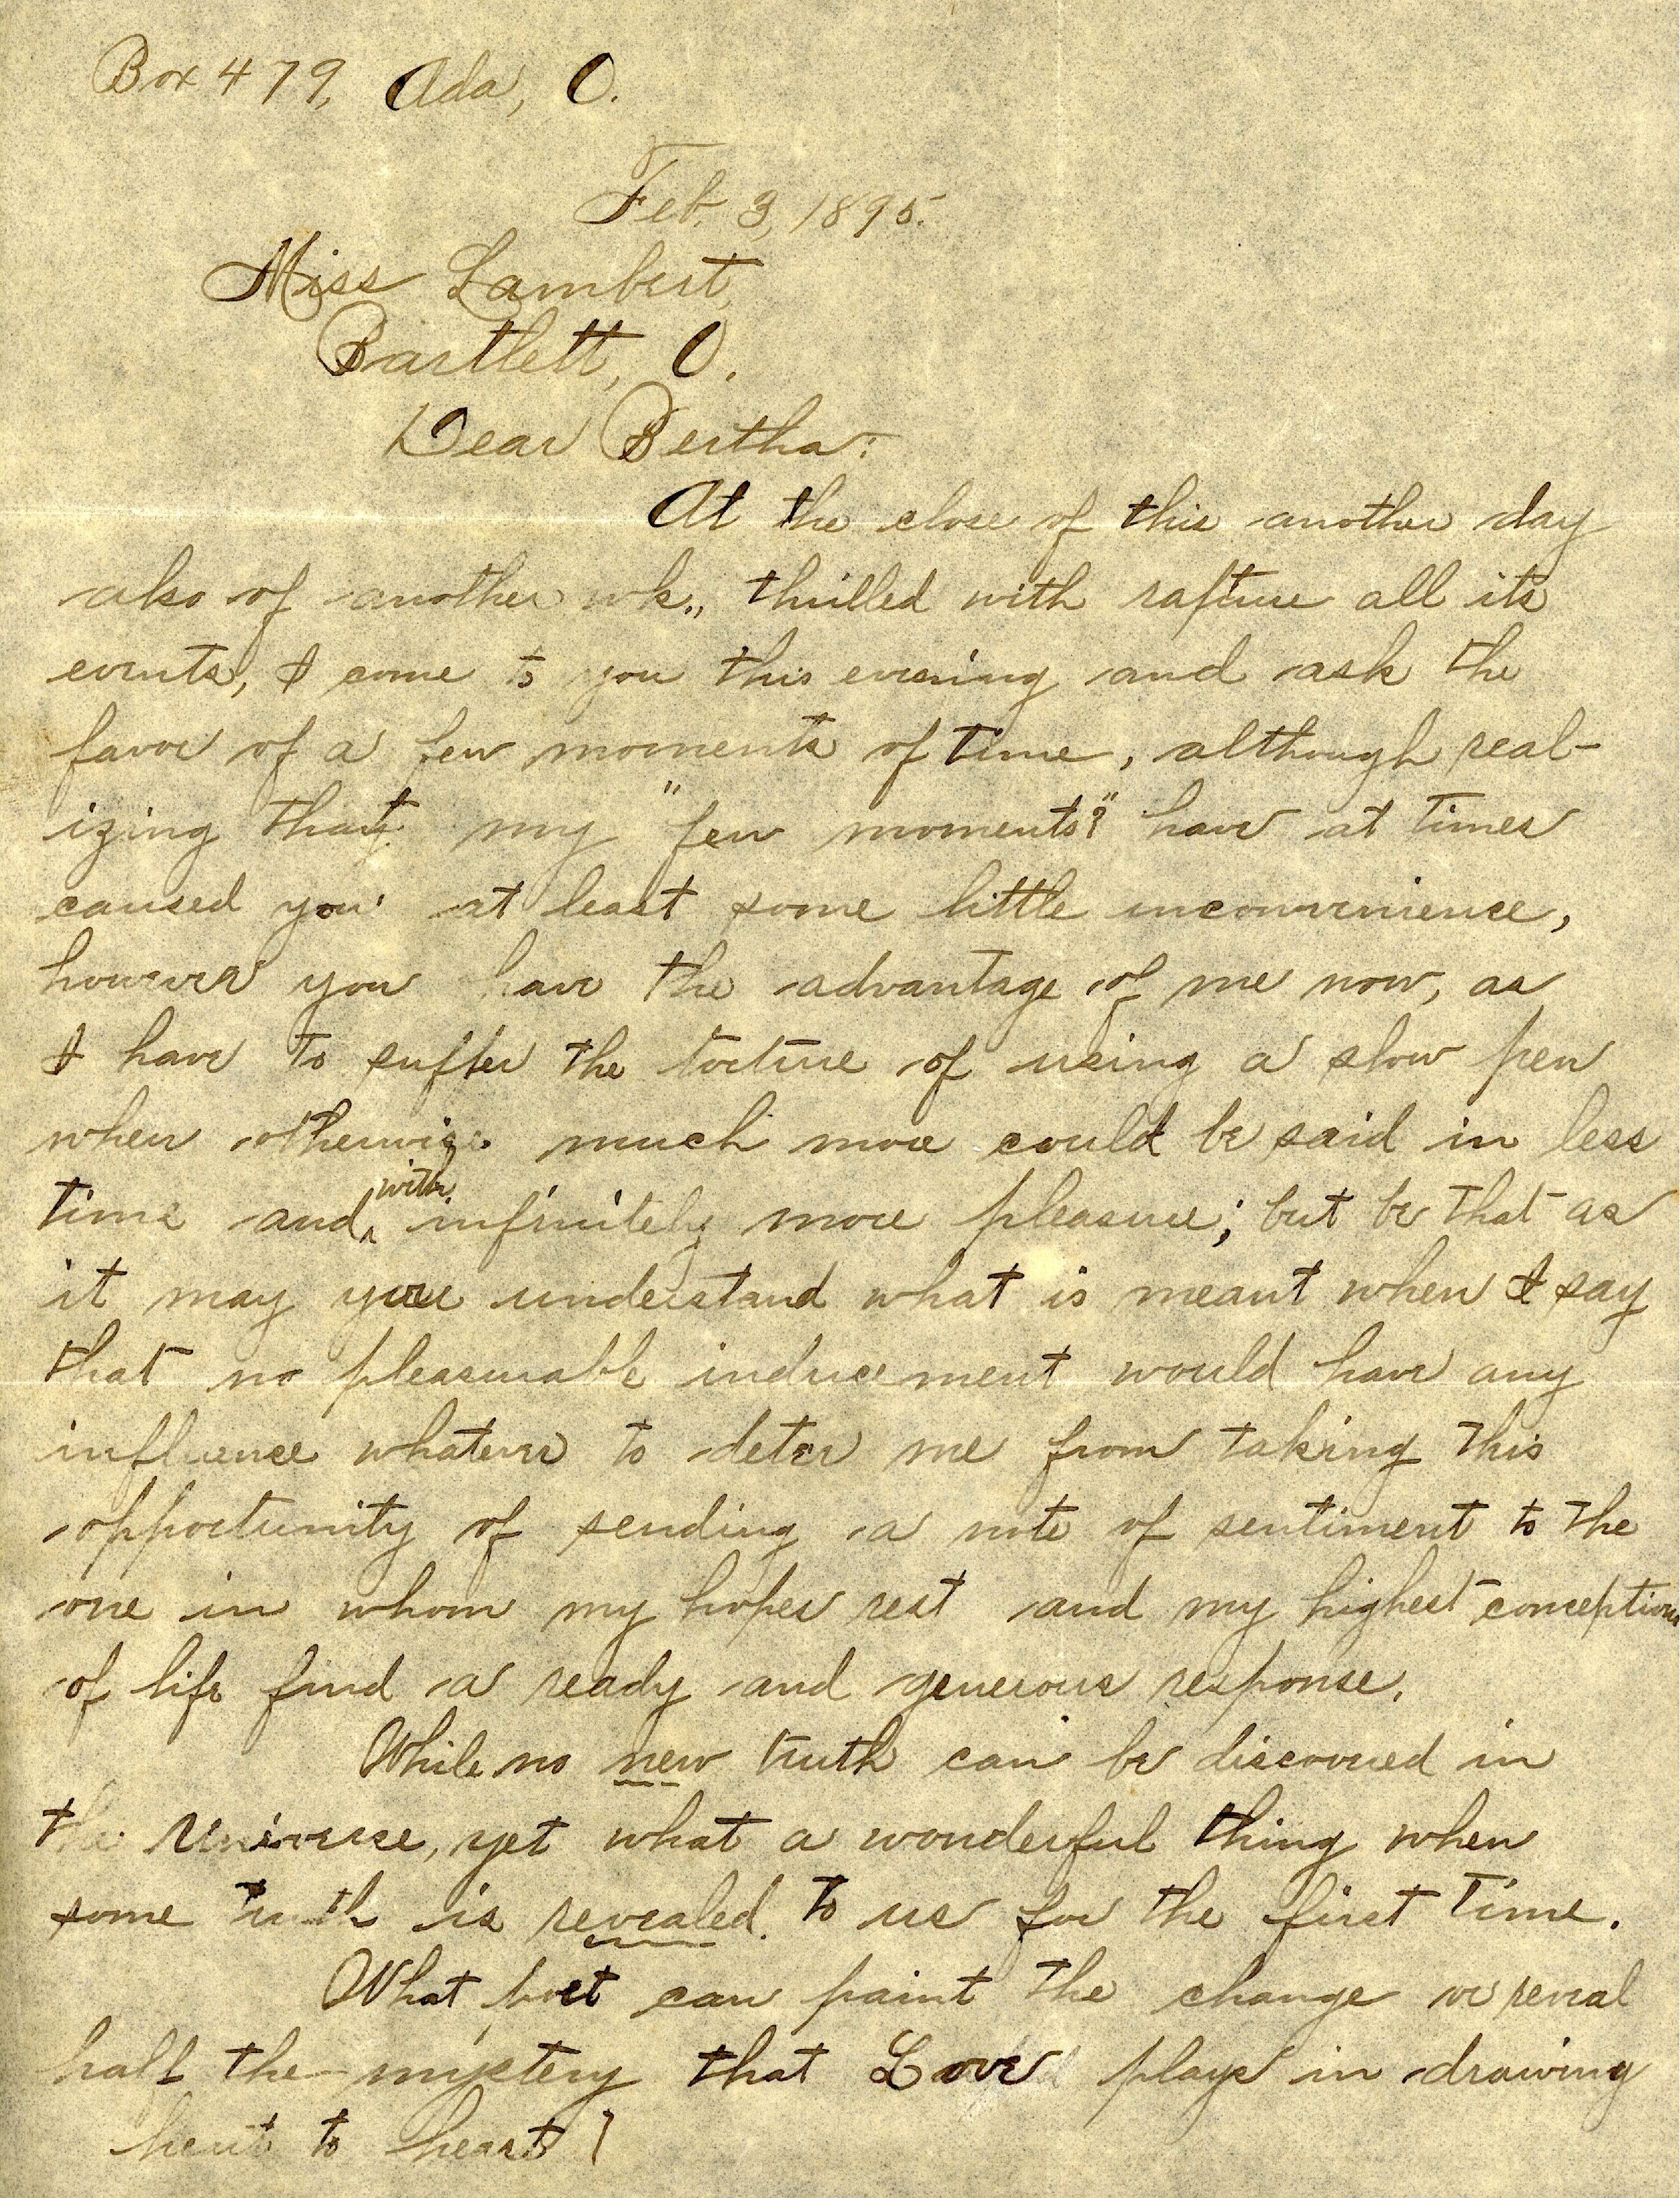 Box 479, Ada, O.
Feb. 3, 1895.
Miss Lambert,
Bartlett, O.
Dear Bertha:
At the close of this another day
also of another wk., thrilled with rapture all its
events, I come to you this evening and ask the
favor of a few moments of time, although real-
izing that my "few moments" have at times
caused you at least some little inconvenience,
however you have the advantage of me now, as
I have to suffer the torture of using a slow pen
when otherwise much more could be said in less
time and with infinitely more pleasure; but be that as
it may you understand what is meant when I say
that no pleasurable inducement would have any
influence whatever to deter me from taking this
opportunity of sending a note of sentiment to the
one in whom my hopes rest and my highest conceptions
of life find a ready and generous response.
While no new truth can be discovered in
the universe, yet what a wonderful thing when
some truth is revealed to us for the first time.
What poet can paint the change or reveal
half the mystery that Love plays in drawing
heart to heart!